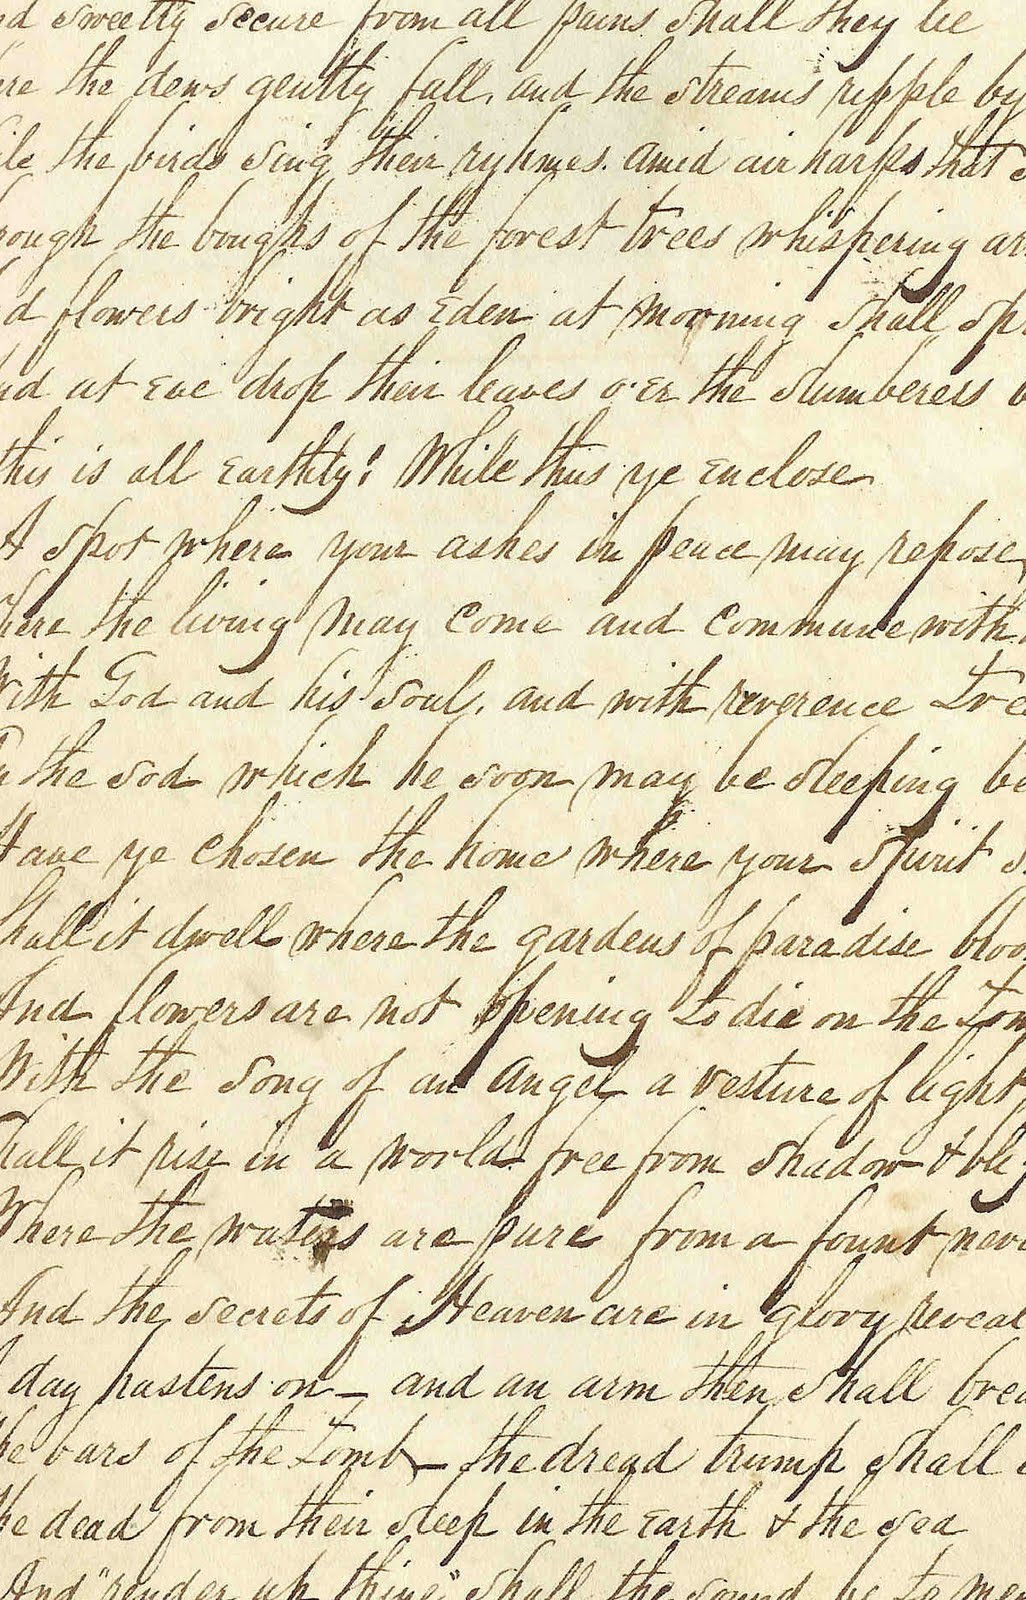 sweetly secure from all pains shall they be
the dews gently fall, and the streams ripple by
the birds sing their ryhmes. amid air harps that
the boughs of the forest trees whispering
flowers bright as Eden at morning shall
at Eve drop their leaves o'er the slumberers
this is all Earthly! While thus ye Enclose
A spot where your ashes in peace may repose,
Where the living may come and commune with
With God and his soul, and with reverence
the sod which he soon may be sleeping
Have ye chosen the home where your spirit
Shall it dwell where the gardens of paradise
And flowers are not opening to die on the
With the song of an angel a vesture of light,
Shall it rise in a world free from shadow &
Where the waters are pure from a fount
And the secrets of Heaven are in glory
day hastens on — and an arm then shall
The bars of the Tomb — the dread trump shall
The dead from their sleep in the Earth & the sea
And "render up thine" shall the sound be to